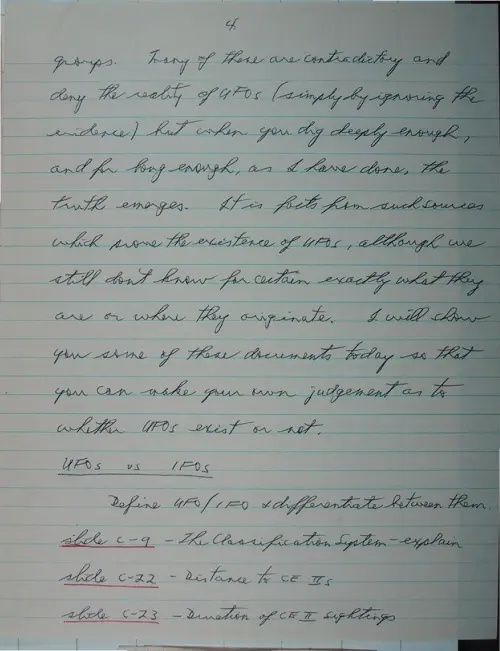 4
groups. Many of these are contradictory and
deny the reality of UFOs (simply by ignoring the
evidence) but when you dig deeply enough,
and for long enough, as I have done, the
truth emerges. It is facts from such sources
which prove the existence of UFOs, although we
still don't know for certain exactly what they
are or where they originate. I will show
you some of these documents today so that
you can make your own judgement as to
whether UFOs exist or not.
UFOs vs IFOs
Define UFO/IFO & differentiate between them.
slide C-9 - The Classification System - explain
slide C-22 - Distance to CE IIs
slide C-23 - Duration of CE II sightings